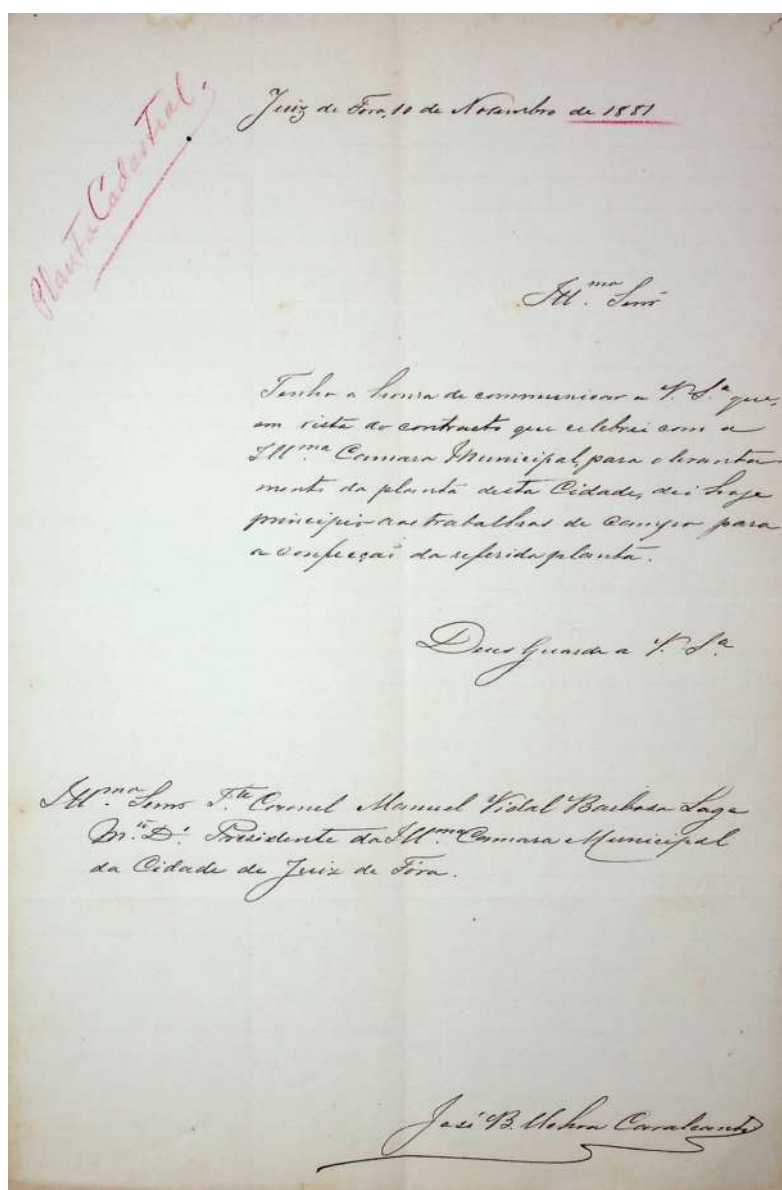 Planta Cadastral.
Juiz de Fora, 10 de Novembro de 1881
Ill.mo Senr
Tenho a honra de communicar a V. S.a que,
em vista do contracto que celebrei com a
Ill.ma Camara Municipal, para o levanta
mento da planta desta Cidade, dei hoje
principio aos trabalhos de campo para
a confecçaõ da referida planta.
Deus Guarde a V. S.a
Ill.mo Senr T.te Coronel Manuel Vidal Barbosa Lage
M.to D. Presidente da Ill.ma Camara Municipal
da Cidade de Juiz de Fóra.
José B. Uchoa Cavalcante